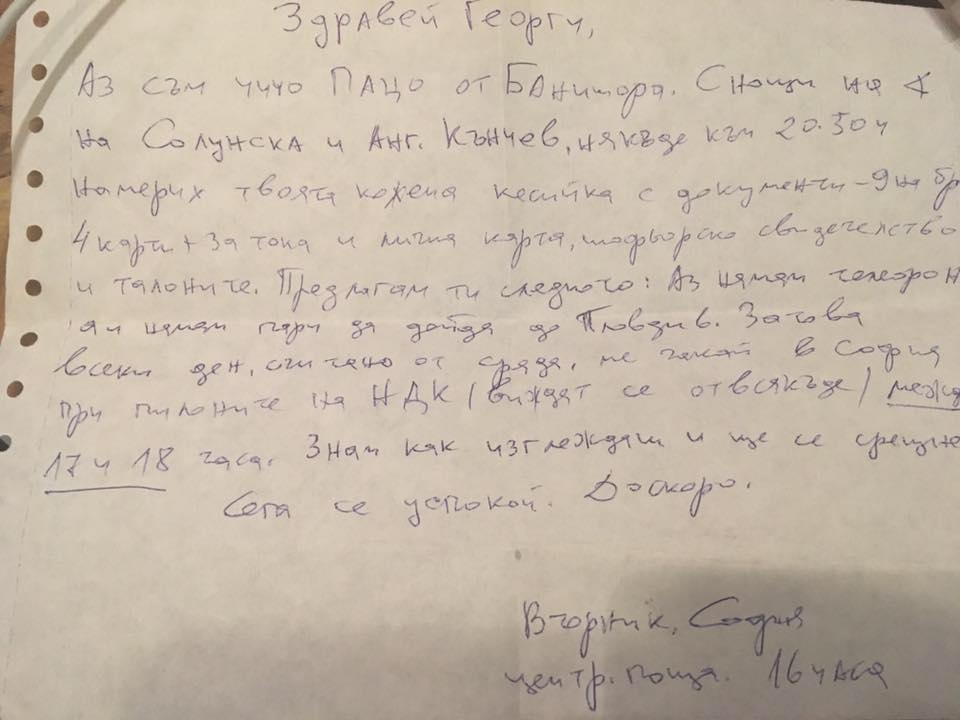 Здравей Георги,
Аз съм чичо ПАЦО от БАнишора. Снощи на
на Солунска и Анг. Кънчев, някъде към 20.30 ч
намерих твоята кожена кесийка с документи – 9 на бр
4 карти + за тока и лична карта, шофьорско свидетелство
и талоните. Предлагам ти следното: Аз нямам телефон
а и нямам пари да дойда до Пловдив. Затова
всеки ден, считано от сряда, ме чакай в София
при пилоните на НДК /виждат се отвсякъде/ межд
17 и 18 часа. Знам как изглеждаш и ще се срещне
Сега се успокой. Доскоро.
Вторник, София
центр. поща. 16 часа